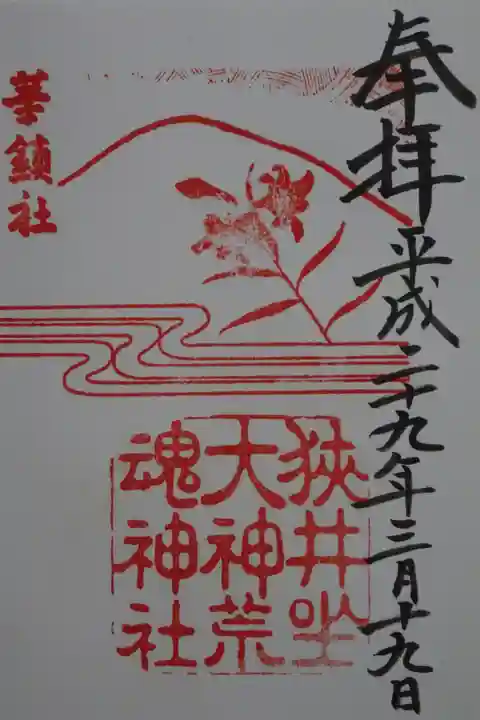 奉拝
平成二十九年三月十九日
狭井坐
大神荒
魂神社
華鎮社